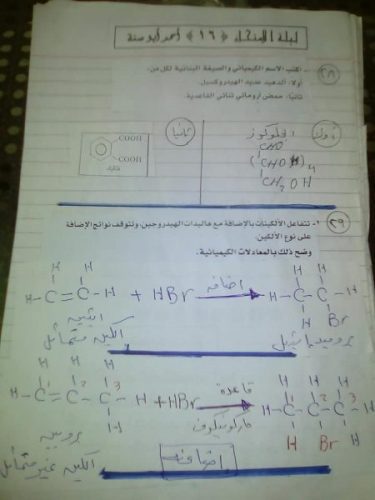 ليلة الامتحان (١٦) أحمد أبو سنة
٢٨
- اكتب الاسم الكيميائي والصيغة البنائية لكل من:
أولا: ألدهيد عديد الهيدروكسيل.
ثانيا: حمض أروماتي ثنائي القاعدية.
أولا
الجلوكوز
CHO
(CHOH)4
CH2OH
ثانيا
COOH
COOH
٢٩
٢- تتفاعل الألكينات بالإضافة مع هاليدات الهيدروجين، وتتوقف نواتج الإضافة
على نوع الألكين.
وضح ذلك بالمعادلات الكيميائية.
H H H H
H-C=C-H + HBr اضافة H-C-C-H
H Br
اثيين
الكين متماثل
بروميد ايثيل
H H H H H H
H-C=C-C-H +HBr قاعدة H-C-C-C-H
1 2 3 1 2 3
H ماركونيكوف H Br H
بروبين
الكين غير متماثل
اضافة